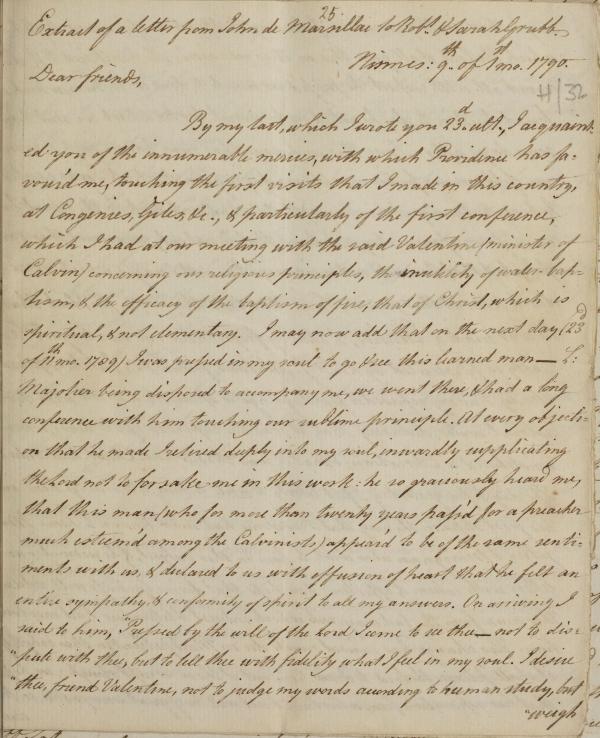 25.
Extract of a letter from John de Marsillac to Robt. & Sarah Grubb.
Nismes: 9th. of 1st mo. 1790.
H/32
Dear friends,
By my last, which I wrote you 23d. ult., I acquaint-
ed you of the innumerable mercies, with which Providence has fa-
vour'd me, touching the first visits that I made in this country,
at Congenies, Giles, &c., & particularly of the first conference,
which I had at our meeting with the said Valentine (minister of
Calvin) concerning our religious principles, the inutility of water-bap-
tism, & the efficacy of the baptism of fire, that of Christ, which is
spiritual, & not elementary. I may now add that on the next day, (23d
of 11th mo. 1789) I was press'd in my soul to go & see this learned man— L:
Majolier being disposed to accompany me, we went there, & had a long
conference with him touching our sublime principle. At every objecti-
on that he made I retired deeply into my soul, inwardly supplicating
the Lord not to forsake me in this work: he so graciously heard me,
that this man (who for more than twenty years pass'd for a preacher
much esteem'd among the Calvinists) appear'd to be of the same senti-
ments with us, & declared to us with effusion of heart that he felt an
entire sympathy, & conformity of spirit to all my answers. On arriving I
said to him, "Pressed by the will of the Lord I come to see thee— not to dis-
"pute with thee, but to tell thee with fidelity what I feel in my soul. I desire
"thee, friend Valentine, not to judge my words according to human study, but
"weigh